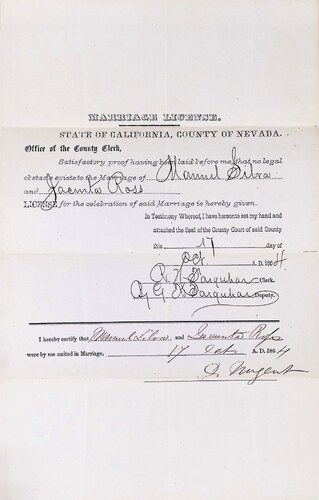 MARRIAGE LICENSE.
STATE OF CALIFORNIA, COUNTY OF NEVADA.
Office of the County Clerk,
Satisfactory proof having been laid before me, that no legal
obstacle exists to the Marriage of Manuel Silva
and Jacinta Ross
LICENSE for the celebration of said Marriage is hereby given.
In Testimony Whereof, I have hereunto set my hand and
attached the Seal of the County Court of said County
this 17 day of
Oct A. D. 1864
R. H. Farquhar Clerk.
By G. K. Farquhar Deputy.
I hereby certify that Manuel Silva and Jacinta Ross
were by me united in Marriage, 17 Oct A. D. 1864
D. Nugent